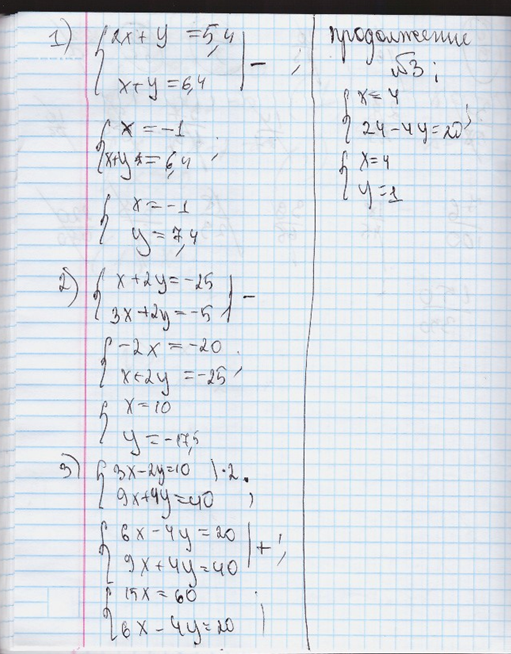 1) { 2x + y = 5,4 | - ;
x + y = 6,4
{ x = -1
x + y = 6,4 ;
{ x = -1
y = 7,4
2) { x + 2y = -25 | -
3x + 2y = -5
{ -2x = -20 ;
x + 2y = -25
{ x = 10
y = -17,5
3) { 3x - 2y = 10 | · 2
9x + 4y = 40 ;
{ 6x - 4y = 20 | + ;
9x + 4y = 40
{ 15x = 60 ;
6x - 4y = 20
продолжение
№3 ;
{ x = 4
24 - 4y = 20 ;
{ x = 4
y = 1